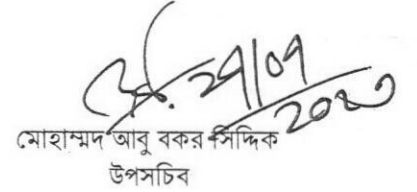 ২০২৩
মোহাম্মদ আবু বকর সিদ্দিক
উপসচিব